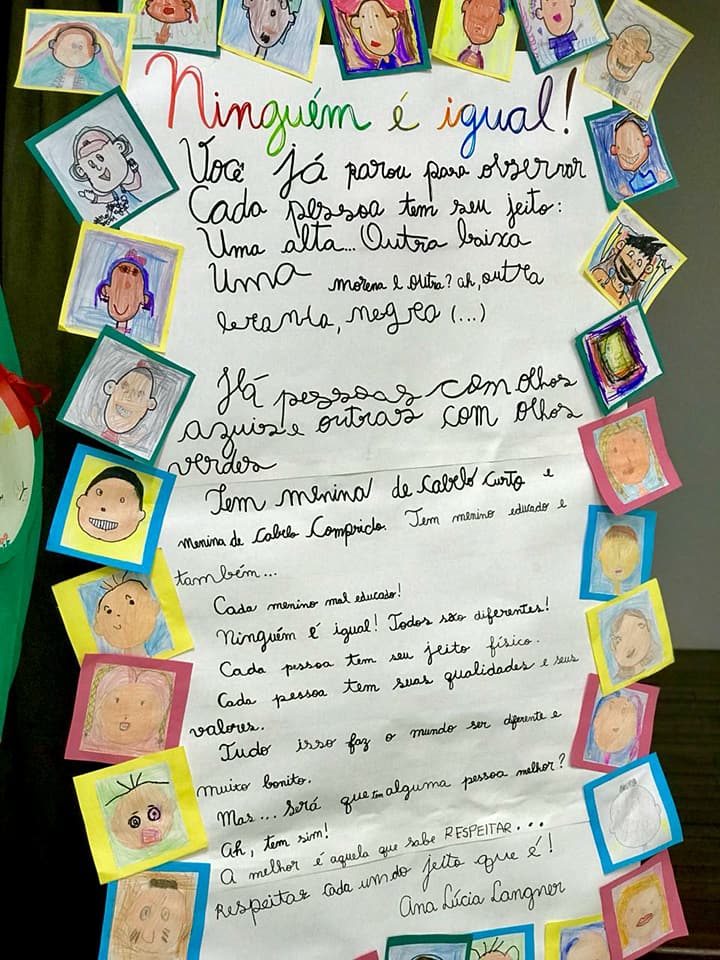 Ninguém é igual!
Você já parou para observar
Cada pessoa tem seu jeito:
Uma alta... Outra baixa
Uma morena e outra? ah, outra
branca, negra (...)
Há pessoas com olhos
azuis e outras com olhos
verdes
Tem menina de cabelo curto e
menina de cabelo comprido. Tem menino educado e
também...
Cada menino mal educado!
Ninguém é igual! Todos são diferentes!
Cada pessoa tem seu jeito físico.
Cada pessoa tem suas qualidades e seus
valores.
Tudo isso faz o mundo ser diferente e
muito bonito.
Mas... Será que tem alguma pessoa melhor?
Ah, tem sim!
A melhor é aquela que sabe RESPEITAR...
Respeitar cada um do jeito que é!
Ana Lúcia Langner